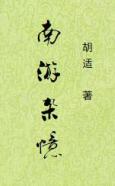 南游杂憶
胡适 著